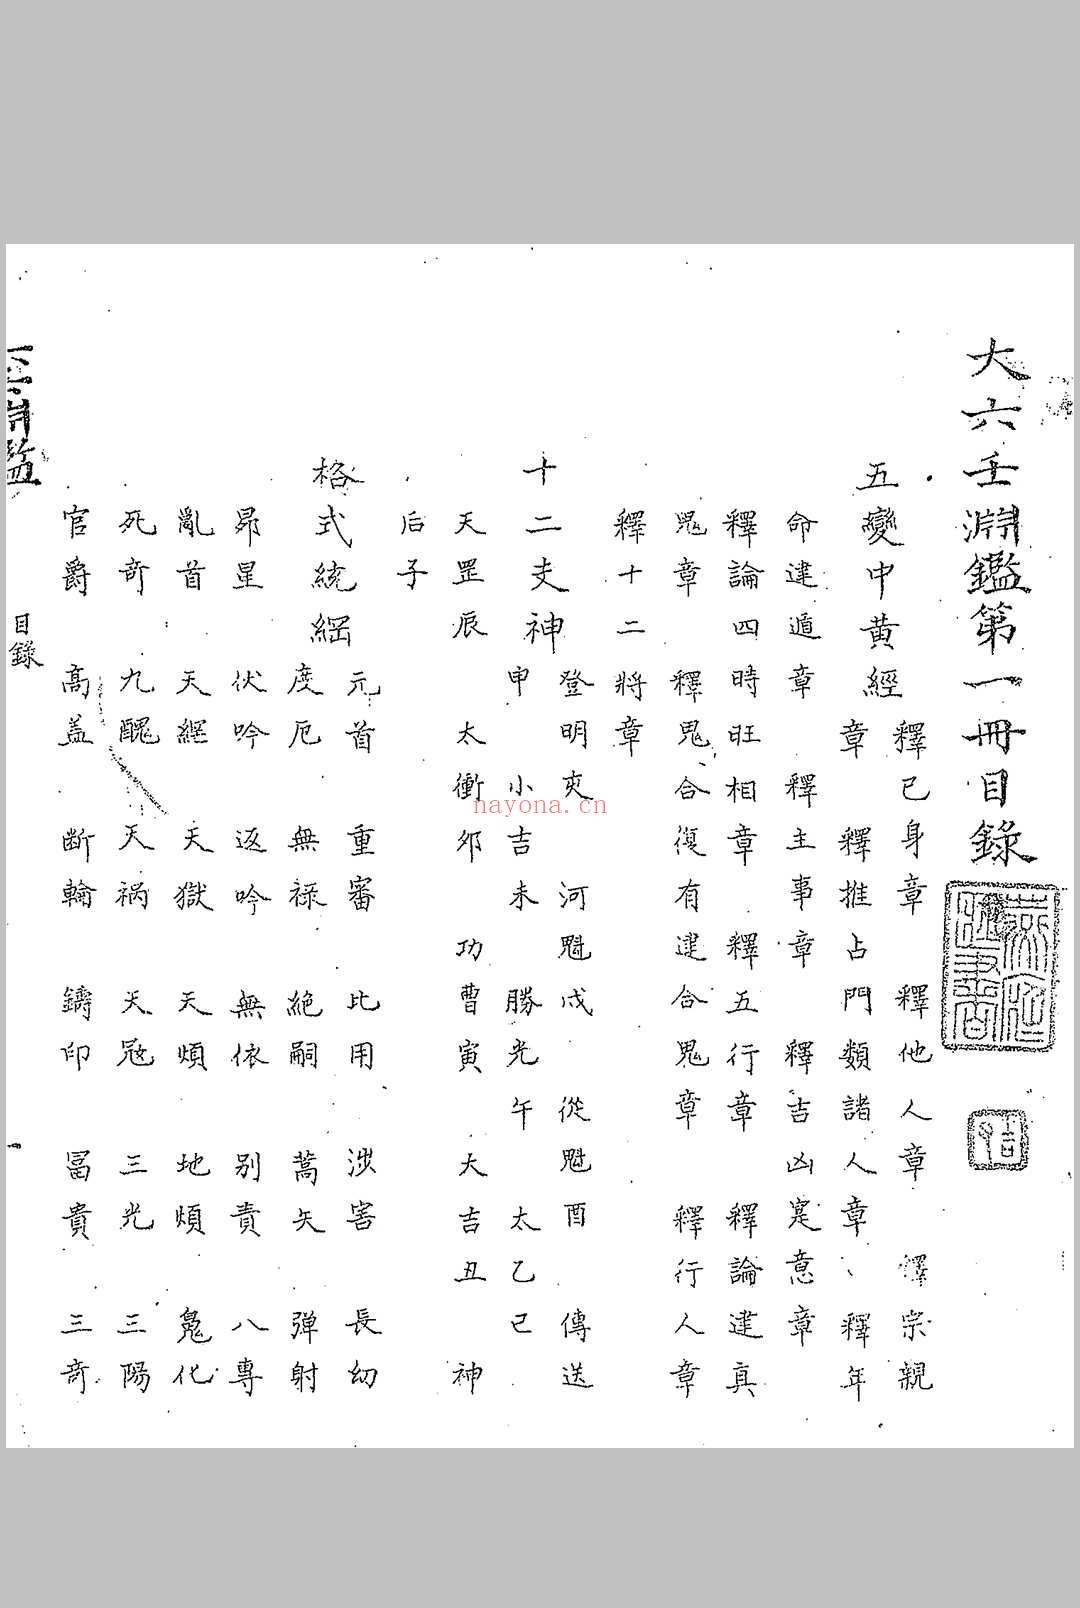 大六壬淵鑑第一冊目錄
五變中黃經
釋已身章 釋他人章 釋宗親
章 釋推占門類諸人章 釋年
命建遁章 釋主事章 釋吉凶寔意章
釋論四時旺相章 釋五行章 釋論建真
鬼章 釋鬼合復有建合鬼章 釋行人章
釋十二將章
十二支神
登明亥 河魁戌 從魁酉 傳送
申 小吉未 勝光午 太乙巳
天罡辰 太衝夘 功曹寅 大吉丑 神
后子
格式統綱
元首 重審 比用 涉害 長幼
度厄 無禄 絶嗣 蒿矢 弹射
昴星 伏吟 返吟 無依 别責 八專
亂首 天網 天獄 天煩 地煩 鬼化
死奇 九醜 天禍 天寇 三光 三陽
官爵 高盖 断輪 鑄印 冨貴 三奇
壬淵鑑
目錄
一
nayona.cn